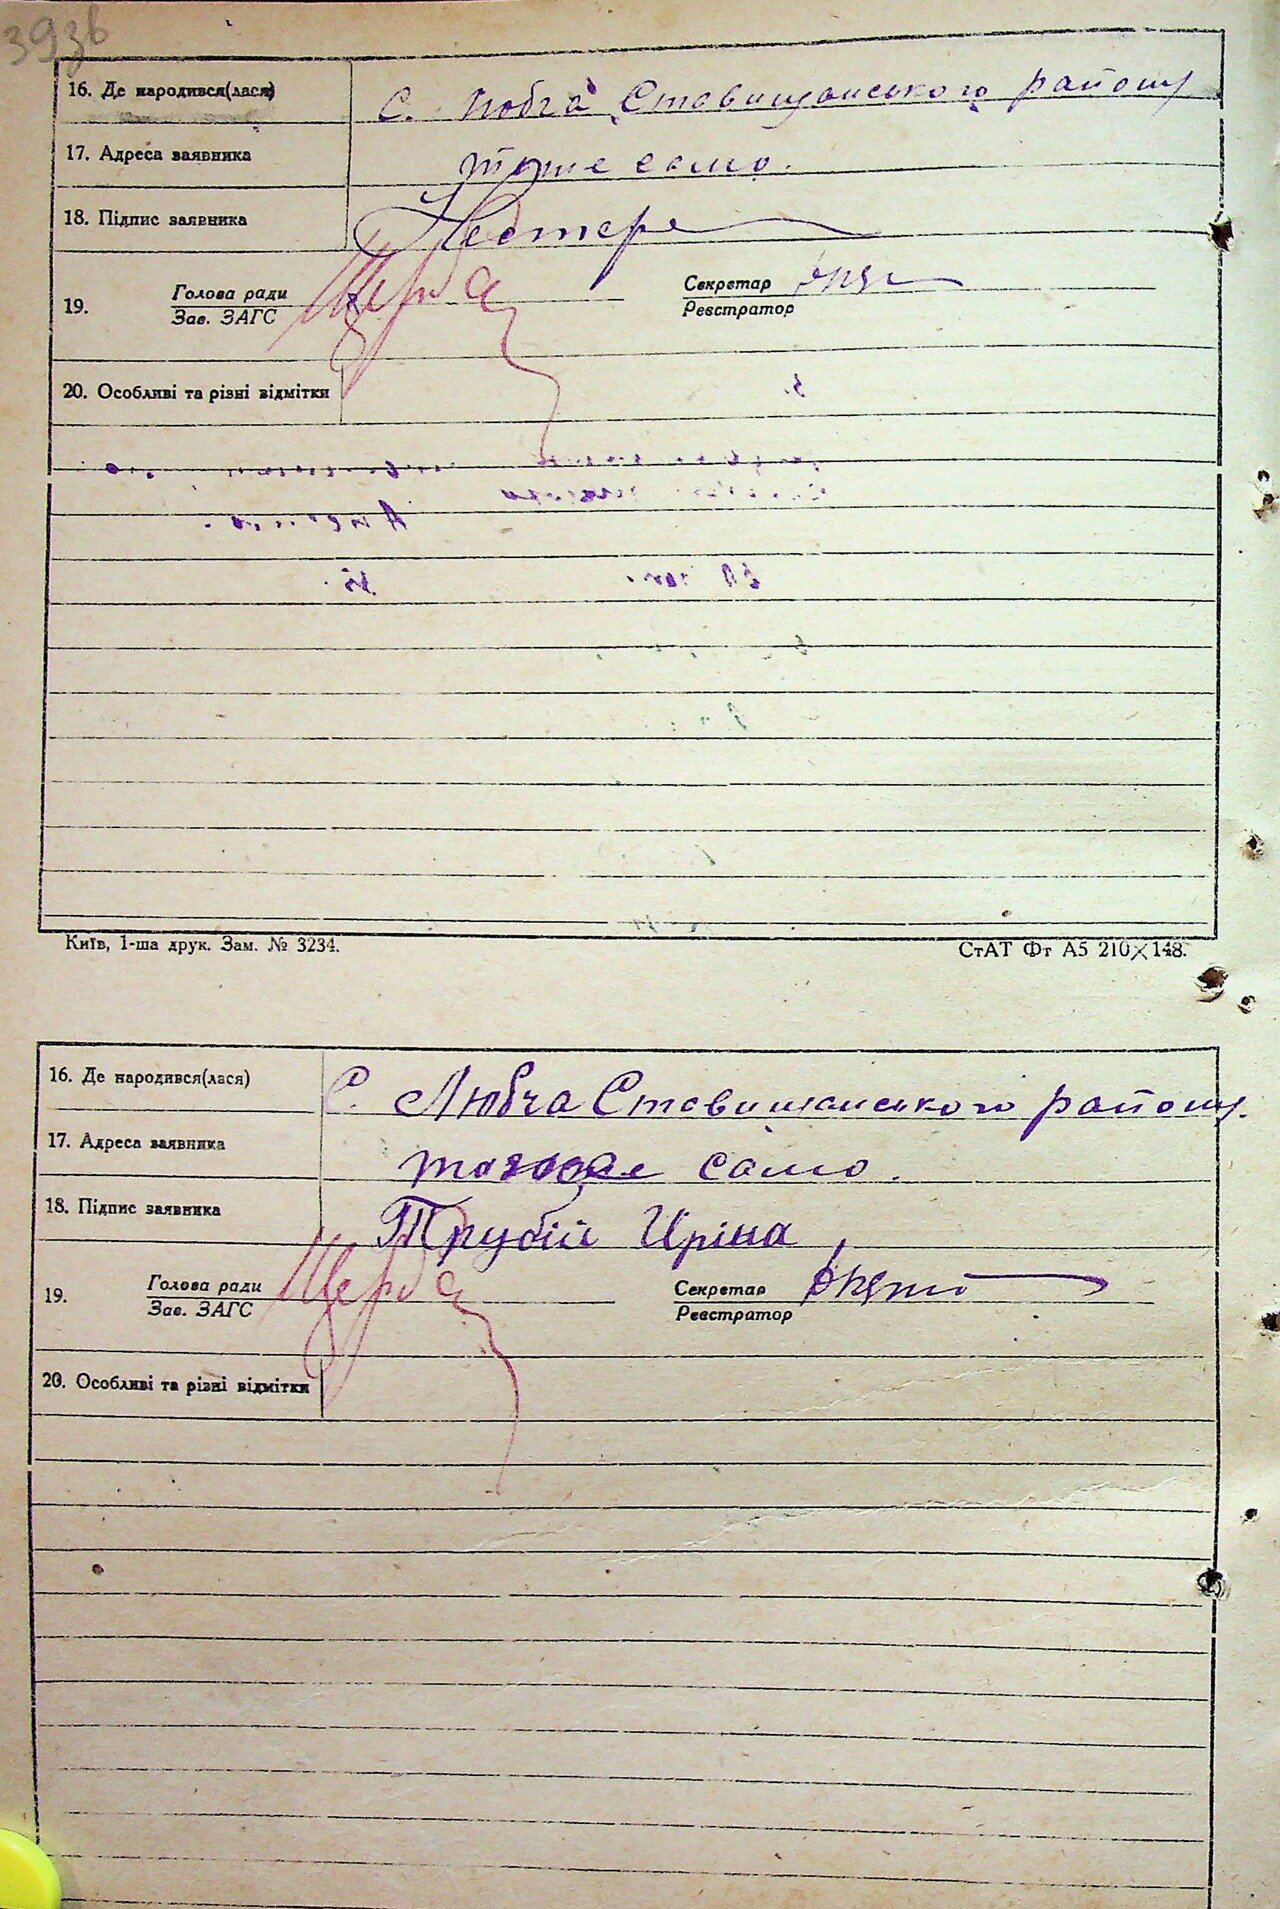 393б
16. Де народився(лася)
С. Любча Ставищанського району
17. Адреса заявника
тоже само.
18. Підпис заявника
Нестере
19.
Голова ради
Зав. ЗАГС
Щерба
Секретар
Реєстратор
20. Особливі та різні відмітки
Київ, 1-ша друк. Зам. № 3234.
СтАТ Фт А5 210×148.
16. Де народився(лася)
С. Любча Ставищанського району.
17. Адреса заявника
само.
18. Підпис заявника
Трубій Іріна
19.
Голова ради
Зав. ЗАГС
Щерба
Секретар
Реєстратор
20. Особливі та різні відмітки